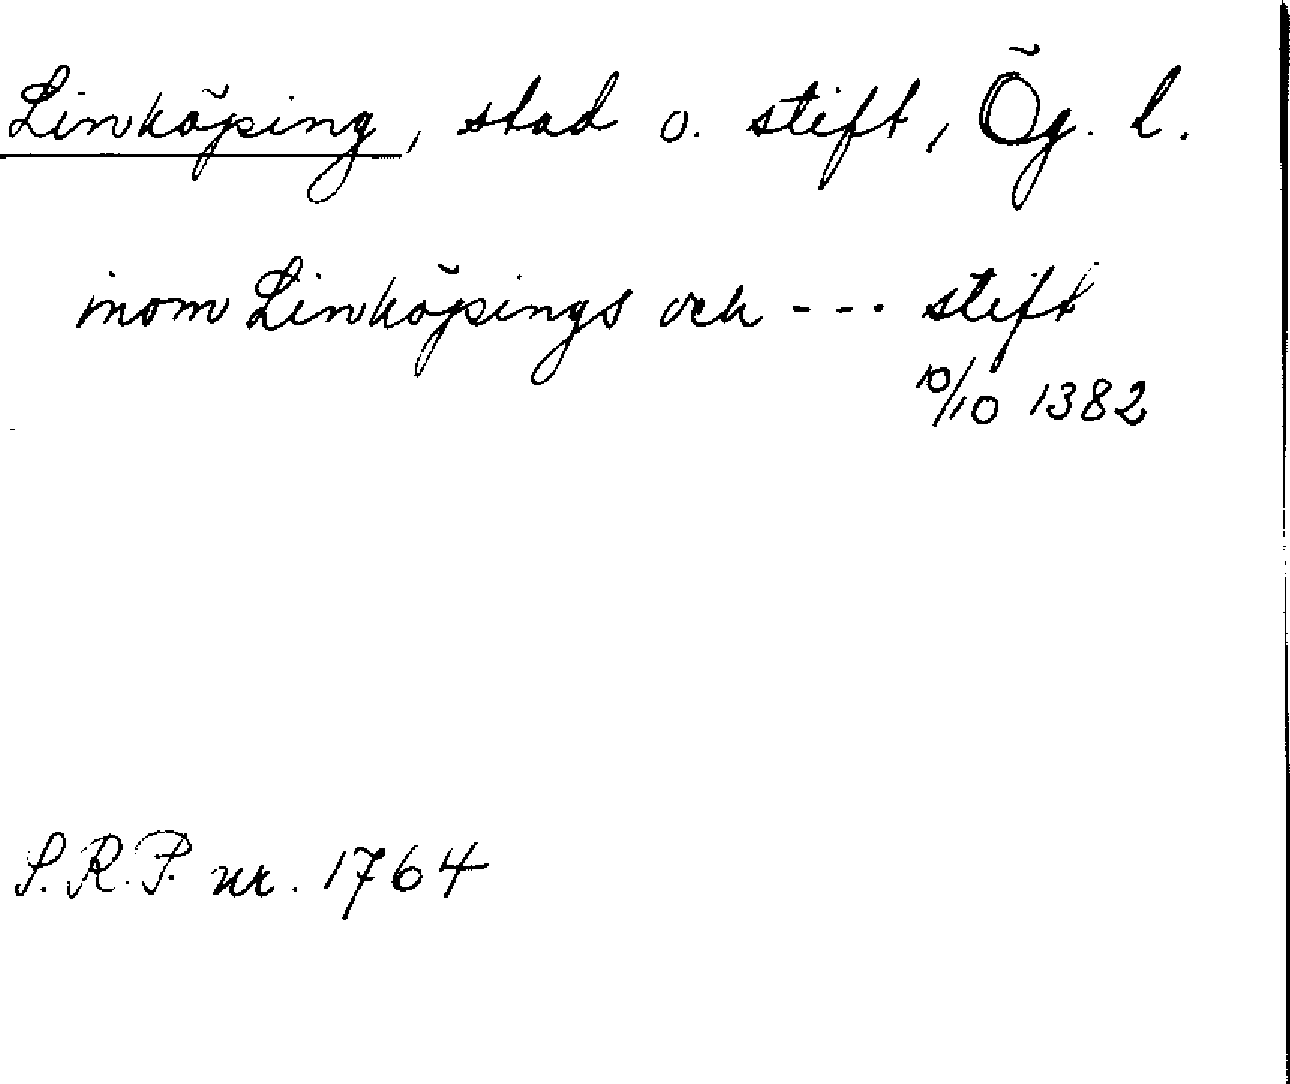 Linköping, stad o. stift, Ög. l.
inom Linköpings och --- stift
10/10 1382
S.R.P. nr. 1764